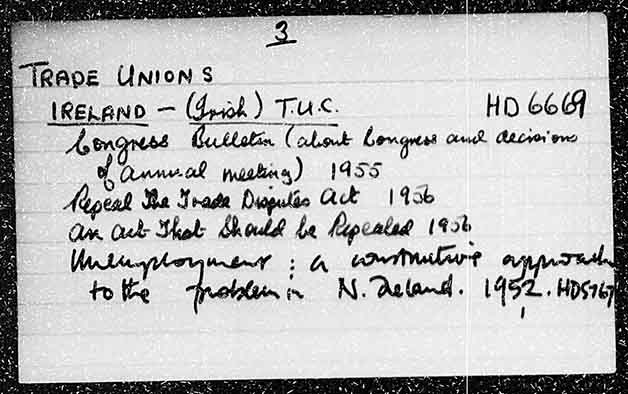 3
TRADE UNIONS
IRELAND - (Irish) T.U.C. HD 6669
Congress Bulletin (about Congress and decisions
of annual meeting) 1955
Repeal The Trade Disputes Act 1956
An Act That Should be Repealed 1956
Unemployment : a constructive approach
to the problem in N. Ireland. 1952. HD5767